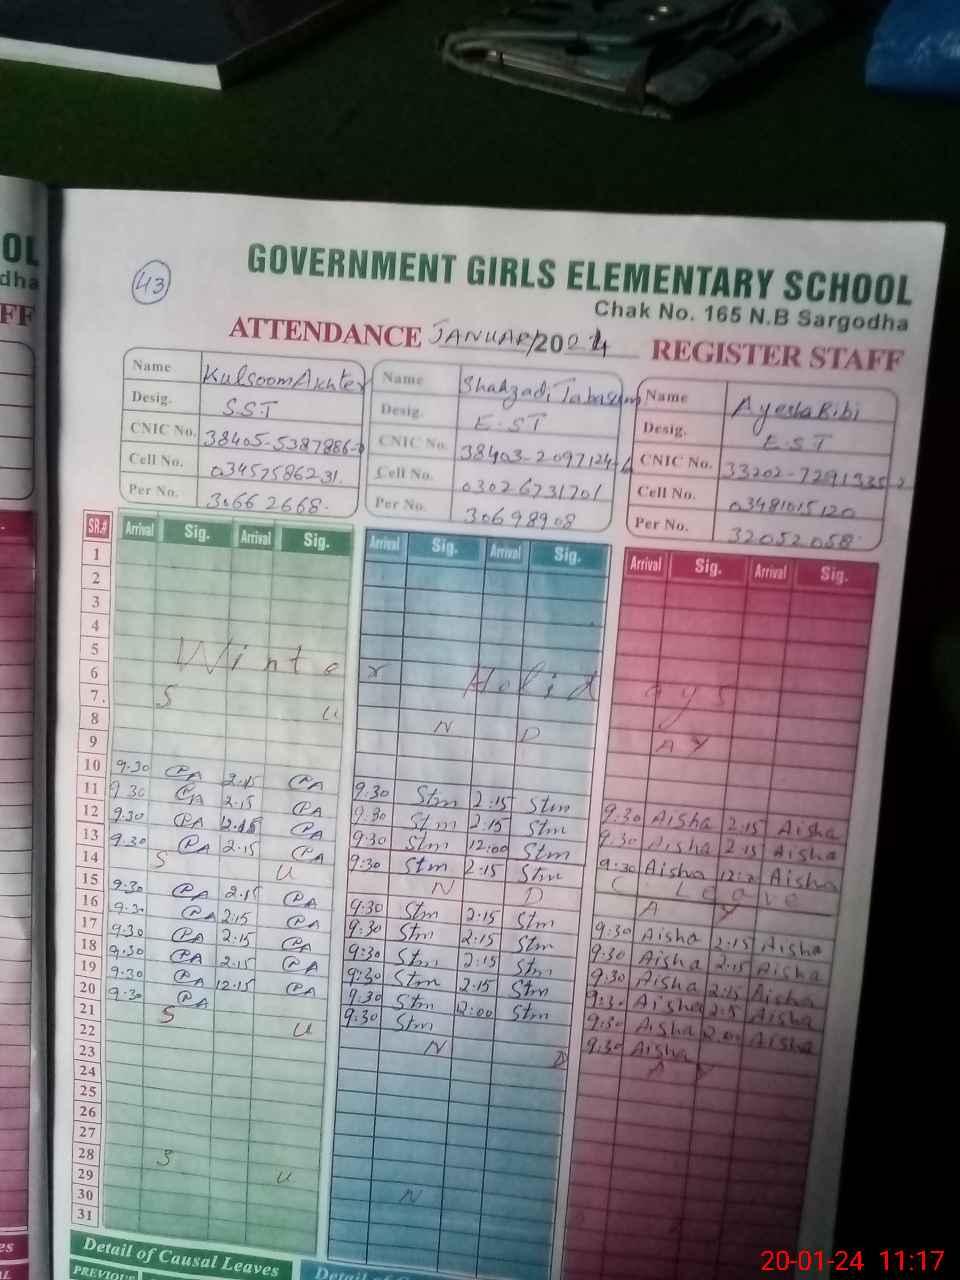 OL
dha
FF
43
GOVERNMENT GIRLS ELEMENTARY SCHOOL
Chak No. 165 N.B Sargodha
ATTENDANCE JANUARY 2024 REGISTER STAFF
Name Kulsoom Akhter Name Shahzadi Tabasum Name Ayesha Bibi
Desig. S.S.T Desig. E.ST Desig. EST
CNIC No. 38405-5387886- CNIC No. 38403-2097124-6 CNIC No. 33202-7291335-2
Cell No. 03457586231. Cell No. 03026731701 Cell No. 03481015120
Per No. 30662668. Per No. 30698908 Per No. 32052058.
SR.# Arrival Sig. Arrival Sig. Arrival Sig. Arrival Sig. Arrival Sig. Arrival Sig.
1
2
3
4
5
6 Winter Holidays
7 S U N D A Y
8
9
10 9.30 PA 2.15 PA 9:30 Stm 2:15 Stm 9:30 Aisha 2:15 Aisha
11 9 30 PA 2.15 PA 9:30 Stm 2:15 Stm 9:30 Aisha 2:15 Aisha
12 9.30 PA 12.15 PA 9:30 Stm 12:00 Stm 9:30 Aisha Aisha
13 9.30 PA 2.15 PA 9:30 Stm 2:15 Stm C. Leave
14 S U N D A Y
15 9.30 PA 2.15 PA 9:30 Stm 2:15 Stm 9:30 Aisha 2:15 Aisha
16 9.30 PA 2.15 PA 9:30 Stm 2:15 Stm 9:30 Aisha 2:15 Aisha
17 9.30 PA 2.15 PA 9:30 Stm 2:15 Stm 9:30 Aisha 2:15 Aisha
18 9.30 PA 2.15 PA 9:30 Stm 2:15 Stm 9:30 Aisha 2:15 Aisha
19 9.30 PA 12.15 PA 9:30 Stm 12:00 Stm 9:30 Aisha 12:00 Aisha
20 9.30 PA 9:30 Stm 9:30 Aisha
21 S U N D A Y
22
23
24
25
26
27
28 S U N
29
30
31
Detail of Causal Leaves Detail of
PREVIOUS
20-01-24 11:17